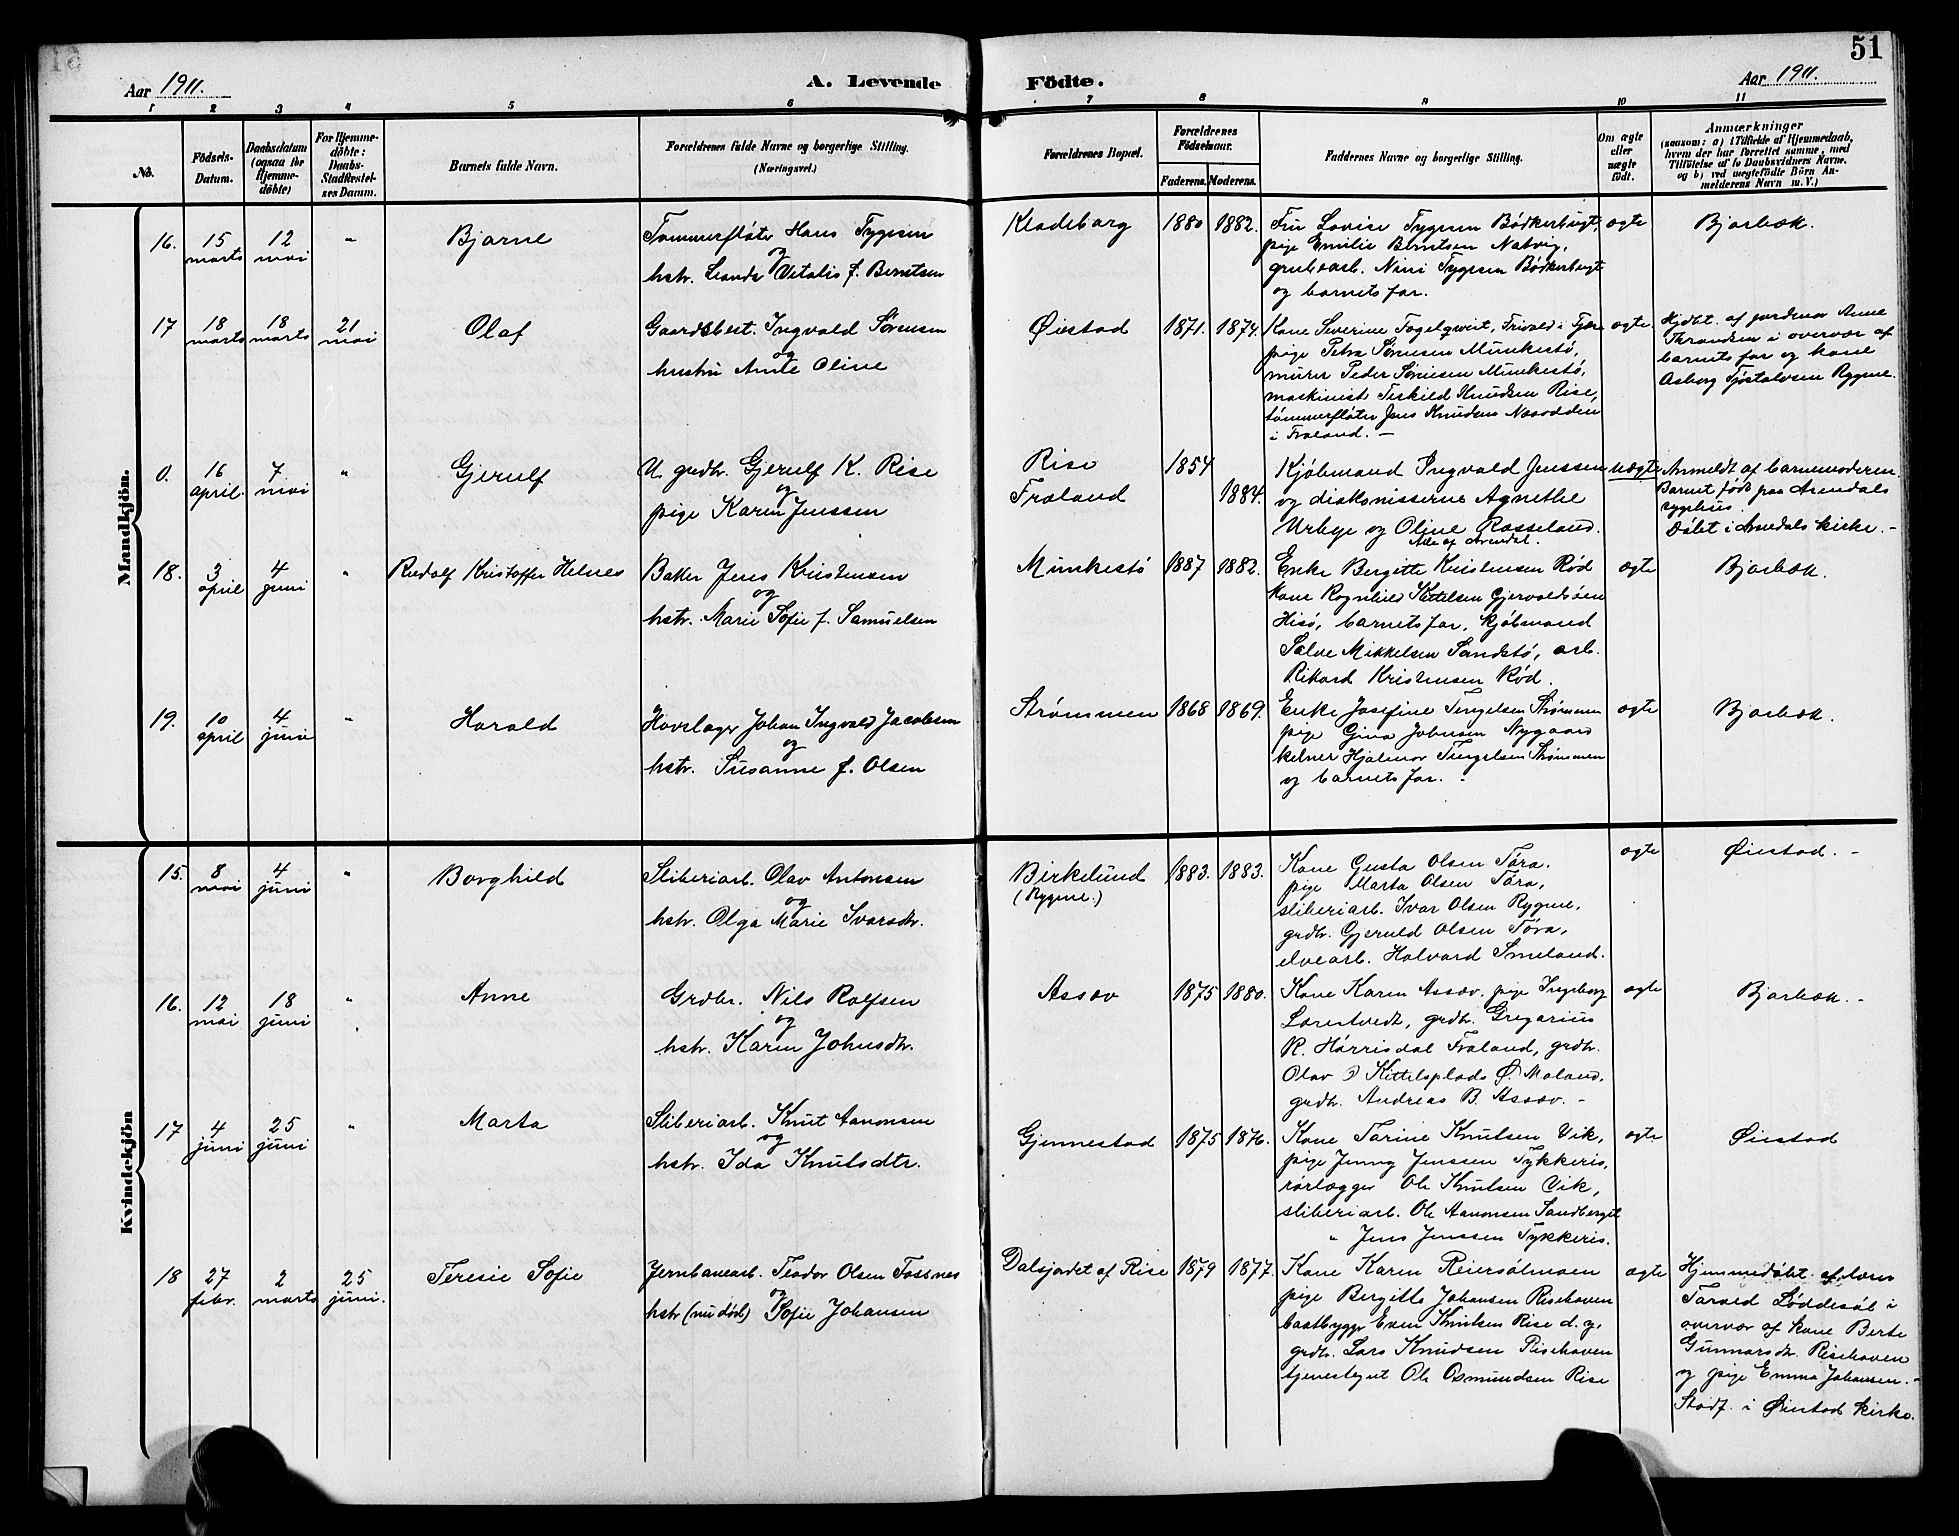 51
Aar 1911. A. Levende Födte. Aar 1911.
1 2 3 4 5 6 7 8 9 10 11
No. Födsels-Datum. Daabsdatum (ogsaa for Hjemmedöbte) For Hjemmedöbte: Daabs-Stadfæstelses Datum. Barnets fulde Navn. Forældrenes fulde Navne og borgerlige Stilling. (Næringsvei.) Forældrenes Bopæl. Forældrenes Födselsaar. Faderens. Moderens. Faddernes Navne og borgerlige Stilling. Om ægte eller uægte födt. Anmærkninger (saasom: a) i Tilfælde af Hjemmedaab, hvem der har forrettet samme, med Tilföielse af to Daabsvidners Navne. og b) ved uægtefödte Börn Anmelderens Navn m. V.)
Mandkjön.
16. 15 marts 12 mai " Bjarne
Tømmerfløter Hans Tygesen
og
hstr. Leanda Vitalis f. Berntsen
Kladeborg 1880 1882.
Fru Lovise Tygesen Bødkerbugt,
pige Emilie Berntsen Natvig,
grubearb. Nini Tygesen Bødkerbugt
og barnets far.
ægte Bjorbæk.
17 18 marts 18 marts 21 mai Olaf
Gaardsbest. Ingvald Sørensen
og
hustru Amle Oline
Øiestad 1871. 1874.
Kone Severine Fogelqveit,
pige Petra Sørensen Munkestø,
murer Peder Sørensen Munkestø,
maskinist Terkild Knudsen Rise,
tømmerfløter Jens Knudsen
i Froland. —
ægte.
Hjdbt. af jordmor Anne
Thrandsen i overvær af
barnets far og kone
Asborg Tjøstolvsen Rygene.
0. 16 april. 7 mai " Gjerulf
U. grdbr. Gjerulf K. Rise
og
pige Karen Jenssen
Rise
Froland
1854
1884.
Kjøbmand Ingvald Jenssen
og diakonisserne Agnethe
Urbye og Oline Rosseland.
Alle af Arendal.
uægte
Anmeldt af barnemoderen.
Barnet født paa Arendals
sygehus.
Døbt i Arendals kirke. -
18. 3 april 4 juni " Rudolf Kristoffer Helnes
Baker Jens Kristensen
og
hstr. Marie Sofie f. Samuelsen
Munkestø 1887 1882.
Enke Bergitte Kristensen Rød
kone Ragnhild Kittelsen Gjervoldsøen
Hisø, barnets far, kjøbmand
Salve Mikkelsen Sandstø, arb.
Rikard Kristensen Rød.
ægte Bjorbæk.
19. 10 april 4 juni " Harald
Hovslager Johan Ingvald Jacobsen
og
hstr. Susanne f. Olsen
Strømmen 1868 1869.
Enke Josefine Tengelsen Strømmen
pige Gina Johnsen Nygaard
kelner Hjalmar Tengelsen Strømmen
og barnets far. -
ægte Bjorbæk.
Kvindekjön
15. 8 mai 4 juni " Borghild
Sliberiarb. Olav Antonsen
og
hstr. Olga Marie Ivarsdtr.
Birkelund
(Rygene.)
1883. 1883.
Kone Gusta Olsen Tøra.
pige Marta Olsen Tøra,
sliberiarb. Ivar Olsen Rygene,
grdbr. Gjeruld Olsen Tøra,
elvearb. Halvard Smeland.
ægte Øiestad. -
16. 12 mai 18 juni " Anne
Grdbr. Nils Rolfsen
og
hstr. Karen Johnsdtr.
Assev 1875 1880.
Kone Karen Assev, pige Ingeborg
Lorestvedt, grdbr. Gregarius
R. Hørrisdal Froland, grdbr.
Olav Kittelsplads Ø. Moland,
grdbr. Andreas B. Assev. -
ægte Bjorbæk. -
17 4 juni 25 juni " Marta
Sliberiarb. Knut Aanonsen
og
hstr. Ida Knutsdtr.
Gjennestad 1875 1876.
Kone Tarine Knutsen Vik,
pige Jenny Jenssen Tykkeris,
rørlægger Ole Knutsen Vik,
sliberiarb. Ole Aanonsen Sandberget
" Jens Jenssen Tykkeris.
ægte Øiestad
18 27 febr. 2 marts 25 juni. Teresie Sofie
Jernbanearb. Teodor Olsen Fossnes
og
hstr (nu død) Sofie Johansen
Dalsjordet af Rise 1879 1877.
Kone Karen Reiersølmoen
pige Bergitte Johansen Risehaven
baatbygger Even Knutsen Rise d. y.
grdbr. Lars Knudsen Risehaven
tjenestegut Ole Osmundsen Rise
ægte
Hjemmedøbt af lærer
Tarald Løddesøl i
overvær af kone Berte
Gunnarsdtr. Risehaven
og pige Emma Johansen. -
Stadf. i Øiestad kirke.